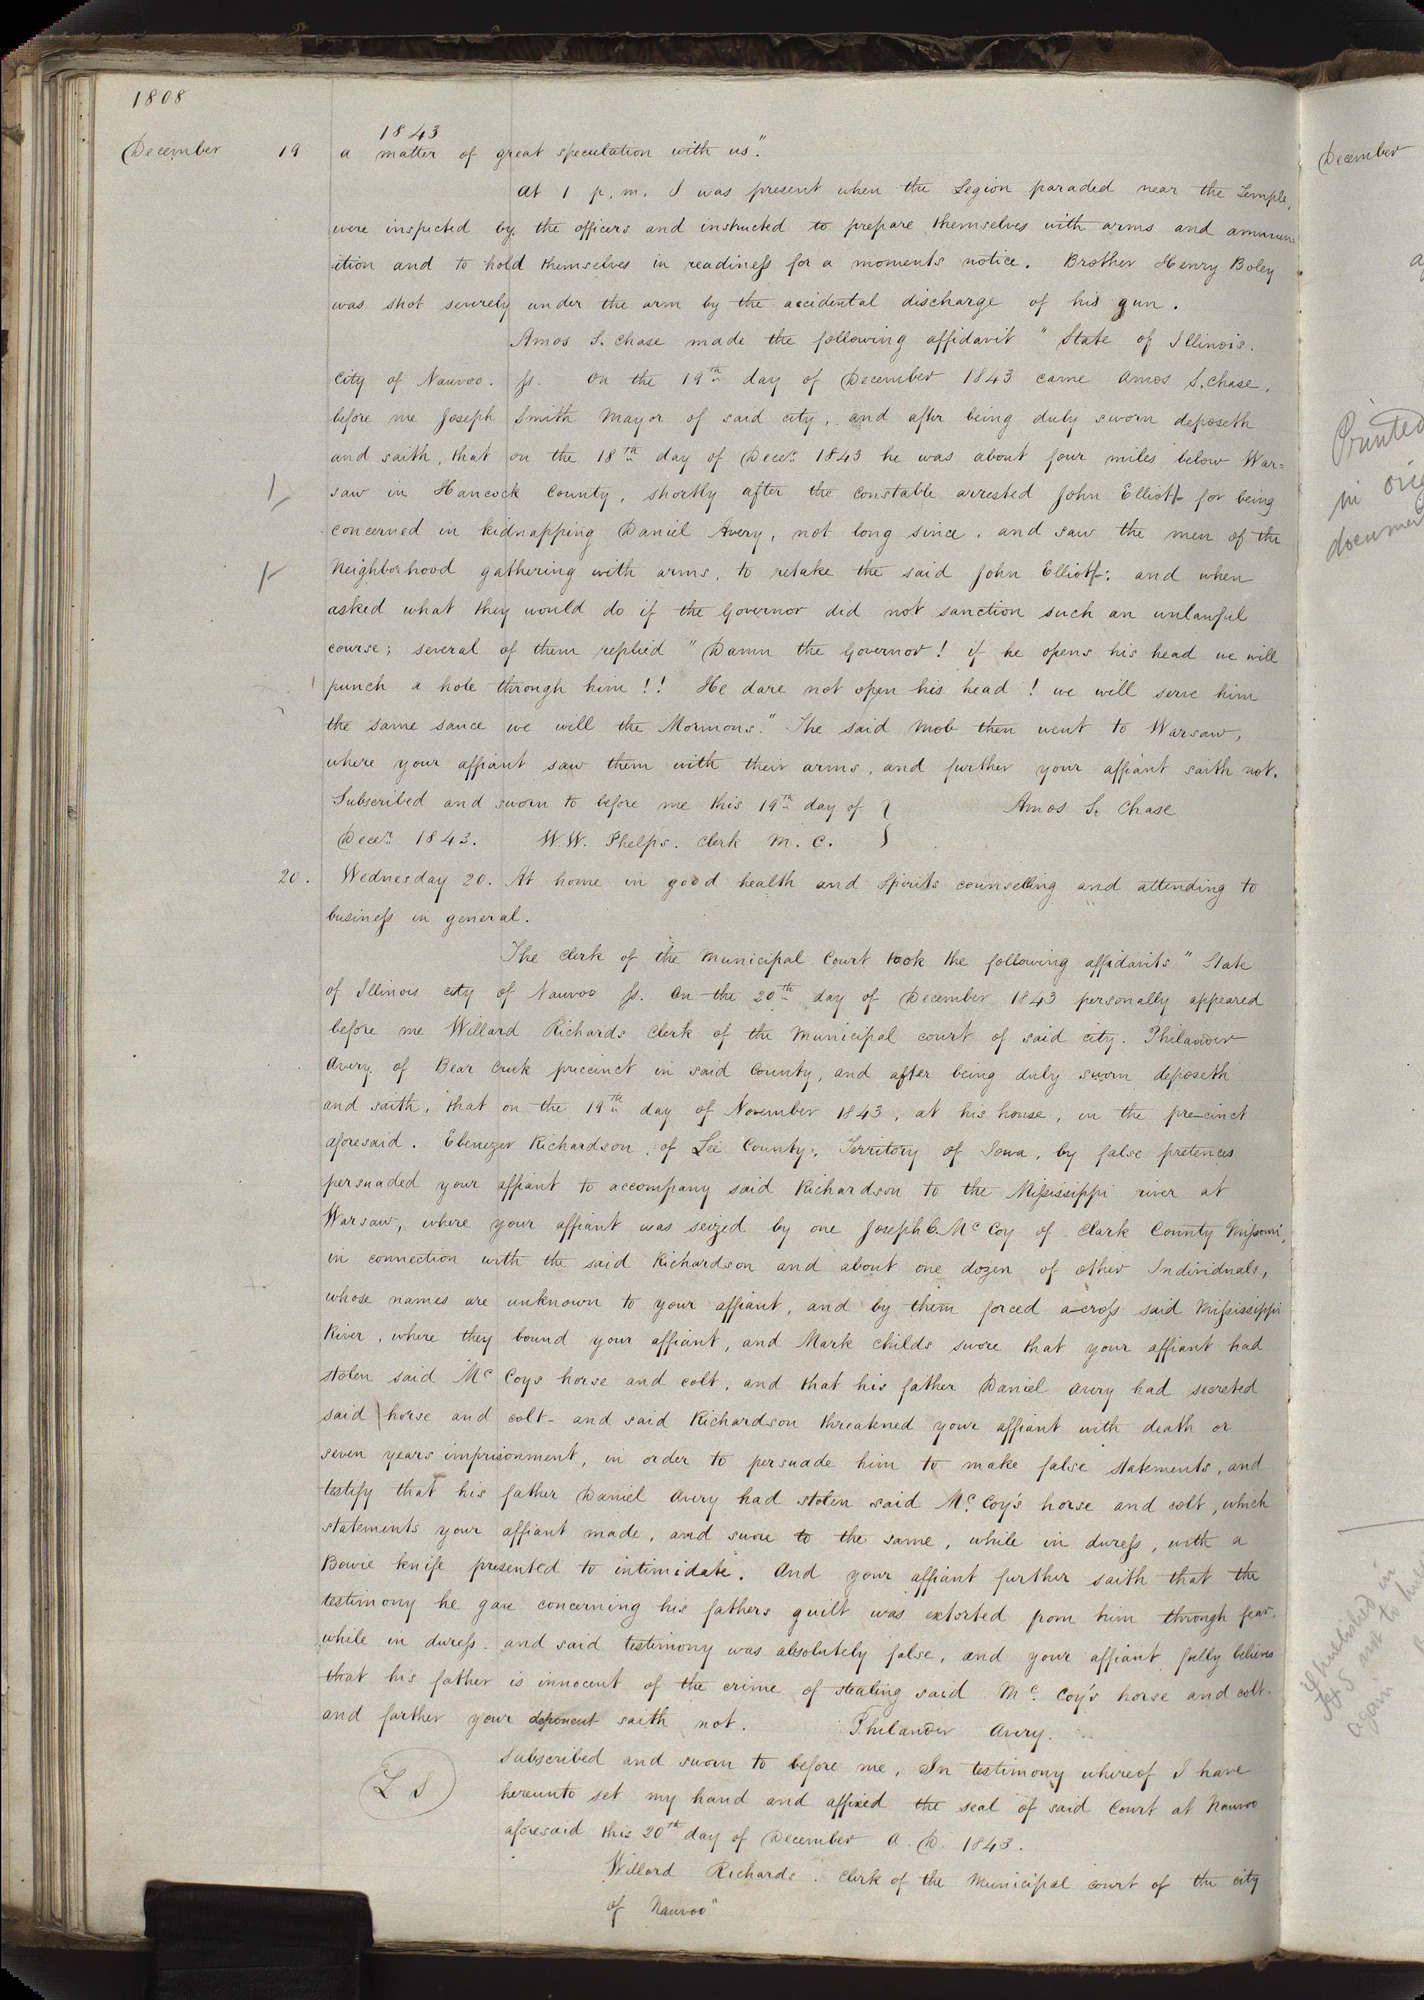 1808
1843
December 19 a matter of great speculation with us."
At 1 p.m. I was present when the Legion paraded near the Temple,
were inspected by the officers and instructed to prepare themselves with arms and ammun-
-ition and to hold themselves in readiness for a moments notice. Brother Henry Boley
was shot severely under the arm by the accidental discharge of his gun.
Amos S. Chase made the following affidavit "State of Illinois.
City of Nauvoo. ss. On the 19th day of December 1843 came Amos S. Chase,
before me Joseph Smith Mayor of said city, and after being duly sworn deposeth
and saith, that on the 18th day of Decr. 1843 he was about four miles below War=
saw in Hancock County, shortly after the constable arrested John Elliott for being
concerned in kidnapping Daniel Avery, not long since, and saw the men of the
Neighborhood gathering with arms, to retake the said John Elliott; and when
asked what they would do if the Governor did not sanction such an unlawful
course; several of them replied "Damn the Governor! if he opens his head we will
punch a hole through him!! He dare not open his head! we will serve him
the same sauce we will the Mormons." The said mob then went to Warsaw,
where your affiant saw them with their arms, and further your affiant saith not.
Subscribed and sworn to before me this 19th day of } Amos S. Chase
Decr. 1843. W. W. Phelps. Clerk M. C.
20. Wednesday 20. At home in good health and spirits counselling and attending to
business in general.
The clerk of the Municipal Court took the following affidavits "State
of Illinois city of Nauvoo ss. On the 20th day of December 1843 personally appeared
before me Willard Richards Clerk of the Municipal court of said city. Philander
Avery of Bear Creek precinct in said County, and after being duly sworn deposeth
and saith, that on the 19th day of November 1843, at his house, in the precinct
aforesaid. Ebenezer Richardson of Lee County, Territory of Iowa, by false pretences
persuaded your affiant to accompany said Richardson to the Mississippi river at
Warsaw, where your affiant was seized by one Joseph C. McCoy of Clark County Missouri,
in connection with the said Richardson and about one dozen of other Individuals,
whose names are unknown to your affiant, and by them forced across said Mississippi
River, where they bound your affiant, and Mark Childs swore that your affiant had
stolen said McCoys horse and colt, and that his father Daniel Avery had secreted
said horse and colt- and said Richardson threatened your affiant with death or
seven years imprisonment, in order to persuade him to make false statements, and
testify that his father Daniel Avery had stolen said McCoy's horse and colt, which
statements your affiant made, and swore to the same, while in duress, with a
Bowie knife presented to intimidate. And your affiant further saith that the
testimony he gave concerning his fathers guilt was extorted from him through fear.
while in duress. and said testimony was absolutely false, and your affiant fully believes
that his father is innocent of the crime of stealing said McCoy's horse and colt.
and farther your deponent saith not. Philander Avery.
L S Subscribed and sworn to before me, In testimony whereof I have
hereunto set my hand and affixed the seal of said Court at Nauvoo
aforesaid this 20th day of December A. D. 1843.
Willard Richards. Clerk of the Municipal court of the city
of Nauvoo"
December
Printed
in
again